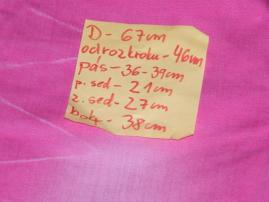 D - 67cm
od rozkroku - 46cm
pás - 36-39cm
p. sed - 21cm
z. sed - 27cm
boky - 38cm